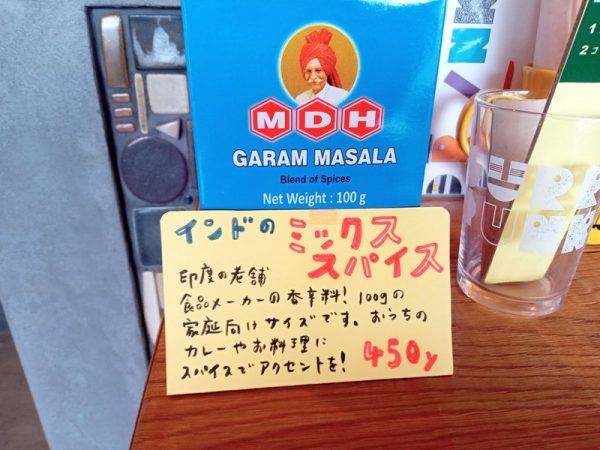 MDH
GARAM MASALA
Blend of Spices
Net Weight : 100 g
インドの ミックス
スパイス
印度の老舗
食品メーカーの香辛料! 100gの
家庭向けサイズです。おうちの
カレーやお料理に
スパイスでアクセントを!
450y